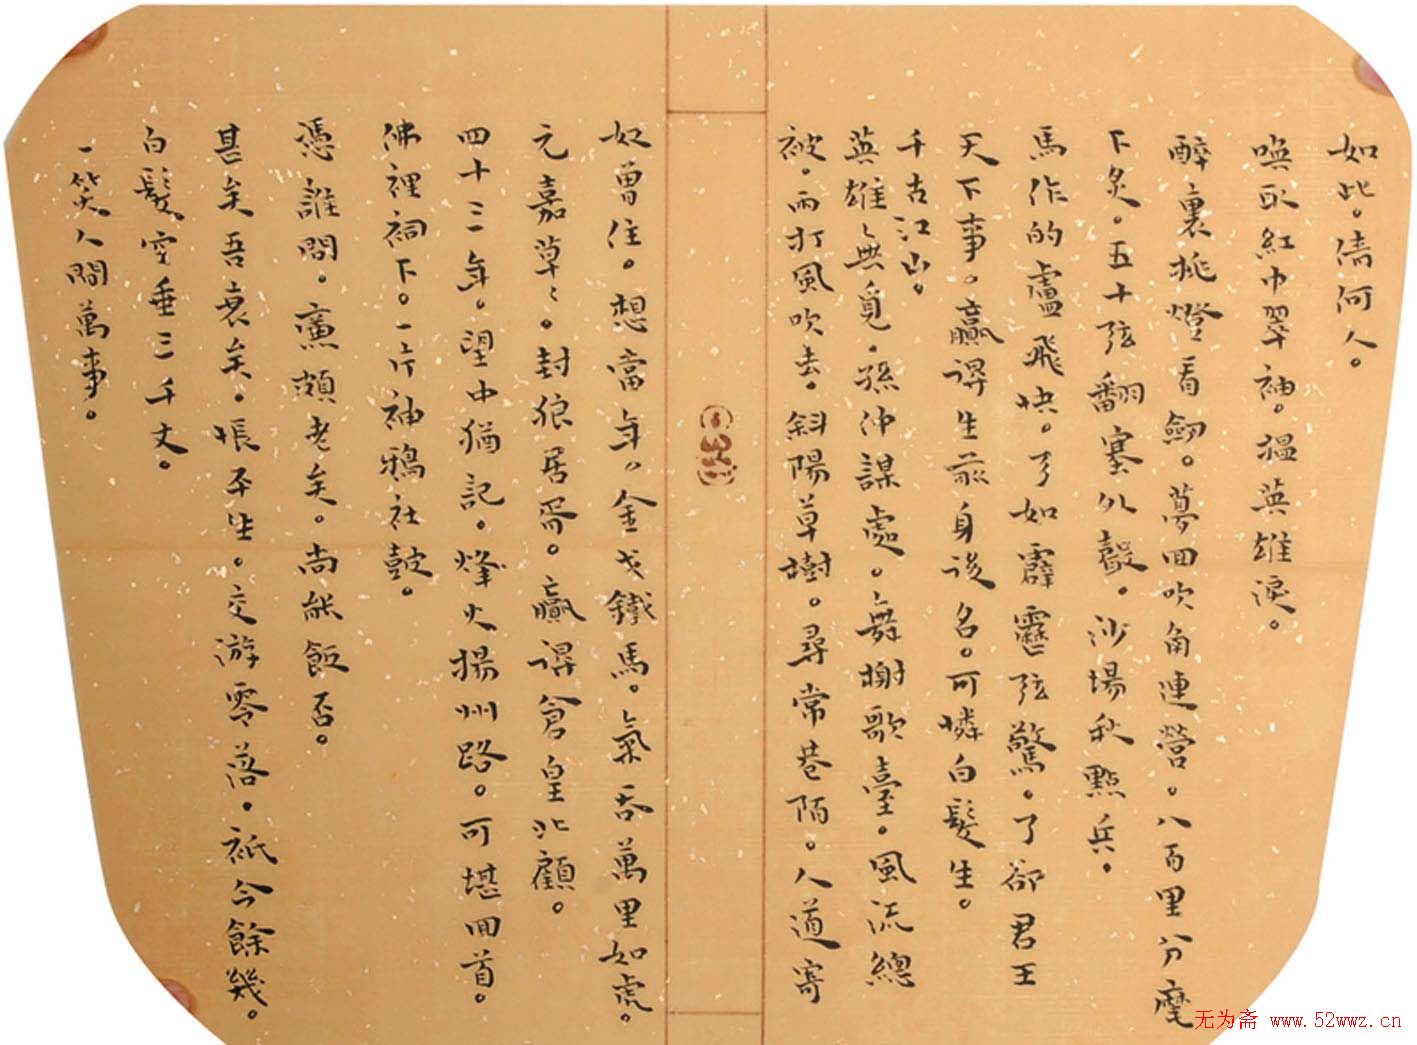 如此。倩何人。
喚取紅巾翠袖。揾英雄淚。
醉裏挑燈看劒。夢回吹角連營。八百里分麾
下炙。五十弦翻塞外聲。沙場秋點兵。
馬作的盧飛快。弓如霹靂弦驚。了卻君王
天下事。贏得生前身後名。可憐白髮生。
千古江山。
英雄無覓。孫仲謀處。舞榭歌臺。風流總
被。雨打風吹去。斜陽草樹。尋常巷陌。人道寄
奴曾住。想當年。金戈鐵馬。氣吞萬里如虎。
元嘉草〻。封狼居胥。贏得倉皇北顧。
四十三年。望中猶記。烽火揚州路。可堪回首。
佛裡祠下。一片神鴉社鼓。
憑誰問。廉頗老矣。尚能飯否。
甚矣吾衰矣。悵平生。交游零落。祇今餘幾。
白髮空垂三千丈。
一笑人間萬事。
无为斋 www.52wwz.cn